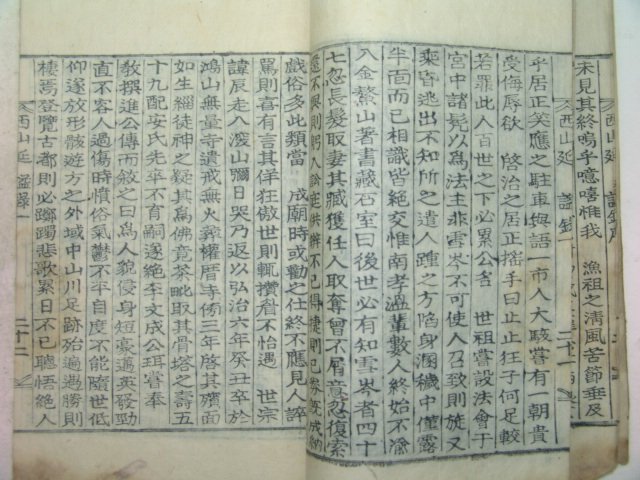 未見其終嗚乎噫嘻惟我 漁祖之清風苦節垂及
西山延諡錄
西山延 諡錄一
乎居正笑應之駐車與語一市人大駭嘗有一朝貴
受侮辱欲 啓治之居正搖手曰止止狂子何足較
若罪此人百世之下必累公名 世祖嘗設法會于
宮中諸髡以爲法主非雪岑不可使人召致則旋又
乘昏逃出不知所之遣人踵之方陷身溷穢中僅露
半面而已相識皆絶交惟南孝溫輩數人終始不渝
入金鰲山著書藏石室曰後世必有知雪岑者四十
七忽長髮取妻其臧獲任人取奪曾不屑意忽復索
還不與則躬入訟庭供辨不已得捷則已券旣成
戲俗多此類當 成廟時或勸之仕終不應見人誶
罵則喜有言其佯狂傲世則輒攢眉不怡遇 世宗
諱辰走入深山彌日哭乃返以弘治六年癸丑卒於
鴻山無量寺遺戒無火葬權厝寺傍三年啓其殯面
如生緇徒神之疑其爲佛竟茶毗取其骨塔之壽五
十九配安氏先卒不育嗣遂絶李文成公珥嘗奉
教撰進公傳而敍之曰爲人貌侵身短豪邁英發勁
直不客人過傷時憤俗氣鬱不平自度不能隨世低
仰遂放形骸遊方之外域中山川足跡殆遍遇勝則
棲焉登覽古都則必躑躅悲歌累日不已聰悟絶人
西山延 諡錄一 二十二